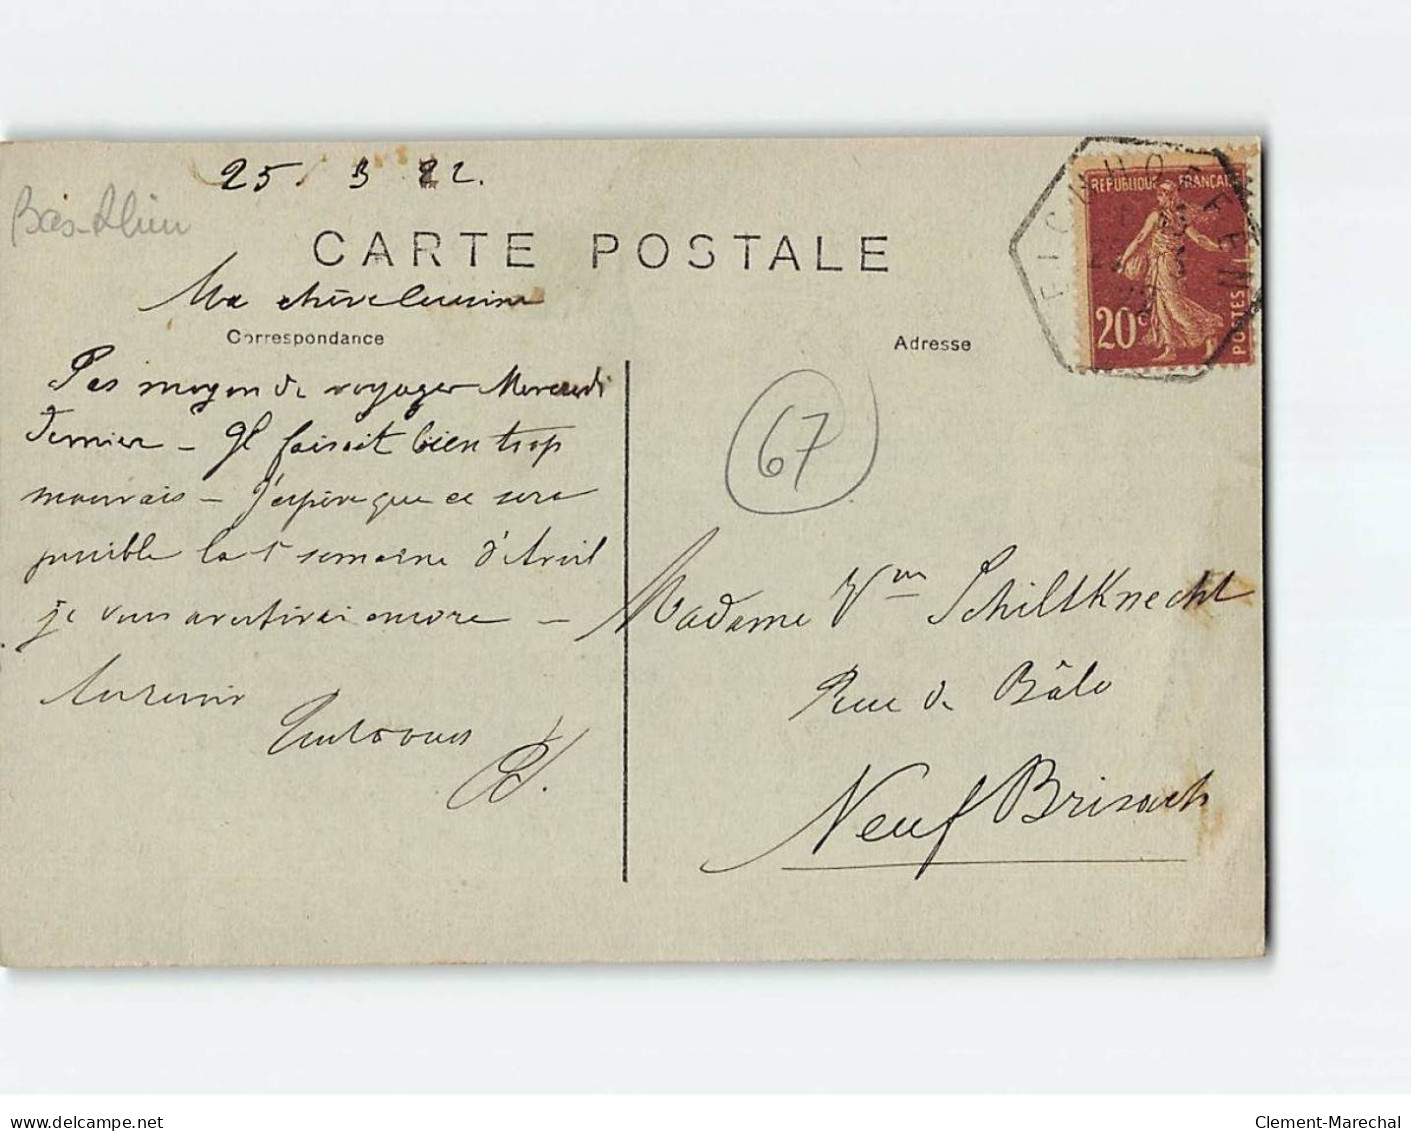 25 3 22.
Bas-Rhin
CARTE POSTALE
Ma chère Cousine
Correspondance
Pas moyen de voyager Mercredi
dernier - Il faisait bien trop
mauvais - J'espère que ce sera
possible la 1e semaine d'Avril
je vous avertirai encore -
Au revoir
RÉPUBLIQUE FRANÇAISE
20c
POSTES
EICHHOFFEN
Adresse
67
Madame Vve Schiltknecht
Rue de Bâle
Neuf Brisach
www.delcampe.net
Clement-Marechal